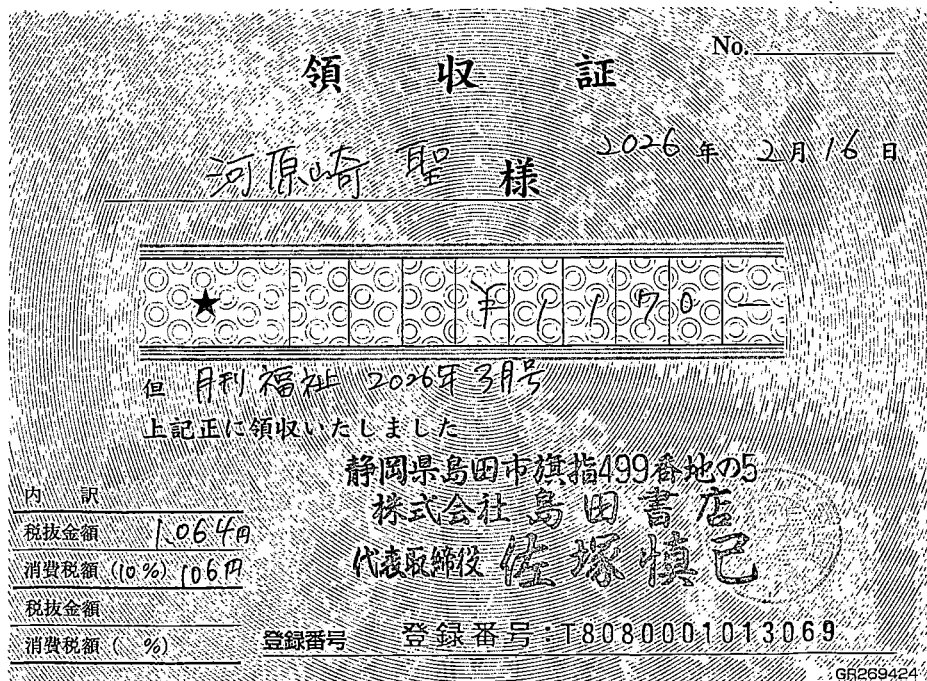 No.
領 収 証
2026 年 2月 16 日
河原崎 聖 様
★ ¥1170-
但 月刊 福祉 2026年 3月号
上記正に領収いたしました
静岡県島田市旗指499番地の5
株式会社 島田書店
代表取締役 佐塚慎己
内 訳
税抜金額 1,064円
消費税額 (10%) 106円
税抜金額
消費税額 ( %)
登録番号 登録番号:T8080001013069
GR269424